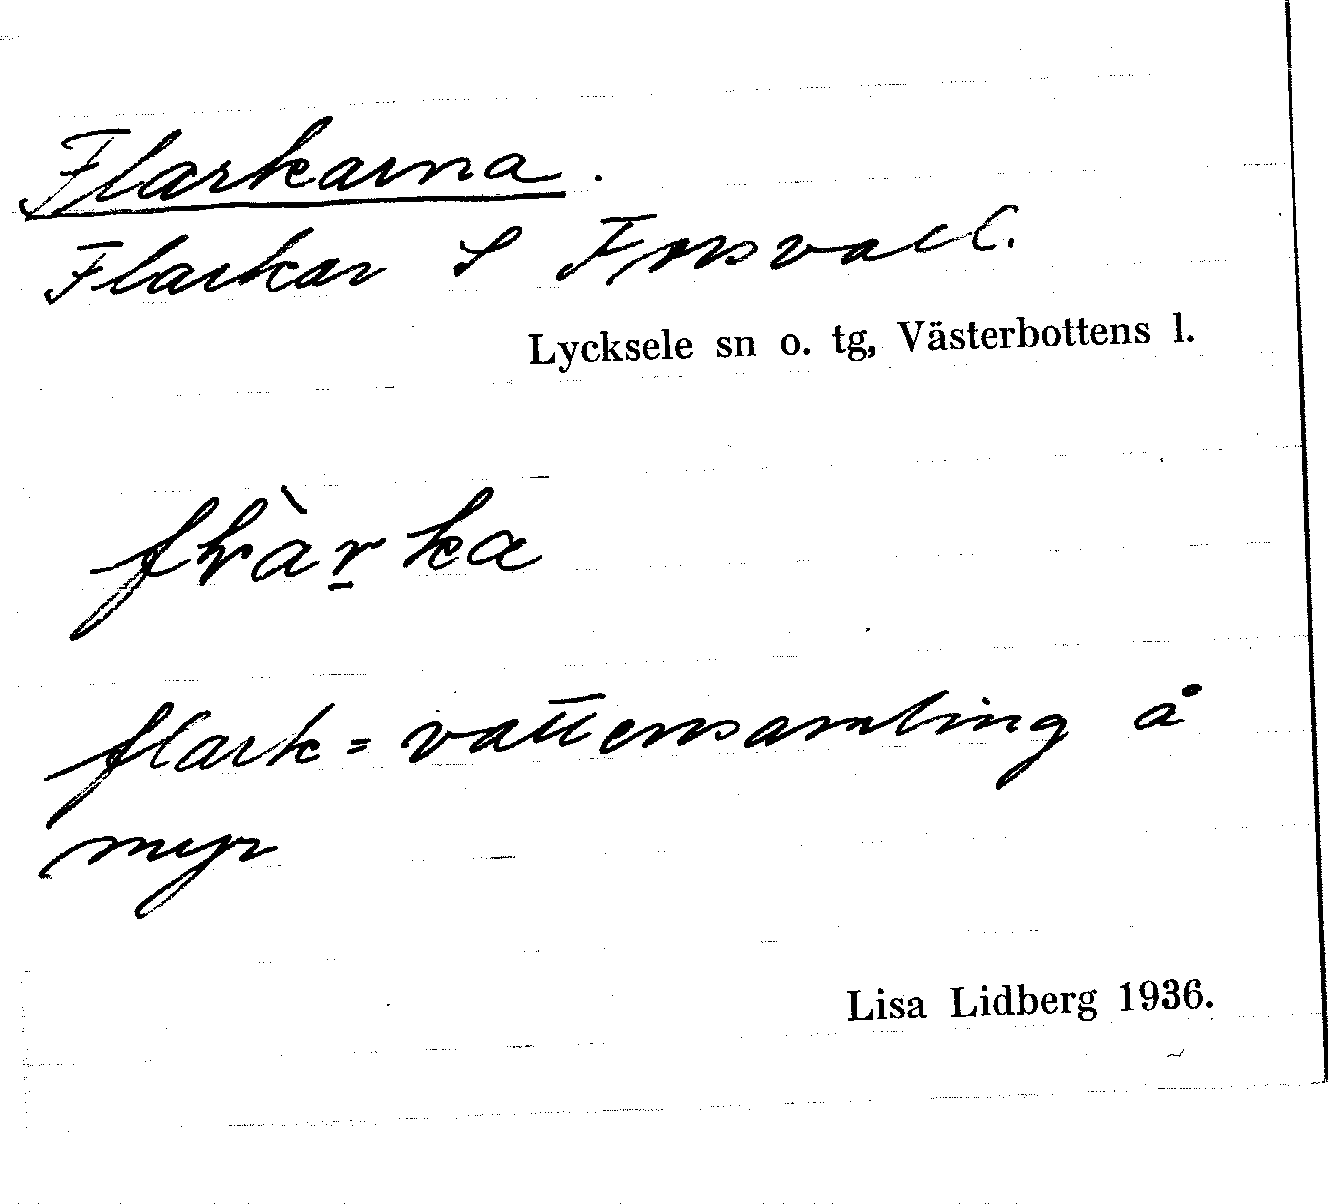 Flarkarna.
Flarkar S
Lycksele sn o. tg, Västerbottens l.
flark = vattensamling å
myr
Lisa Lidberg 1936.